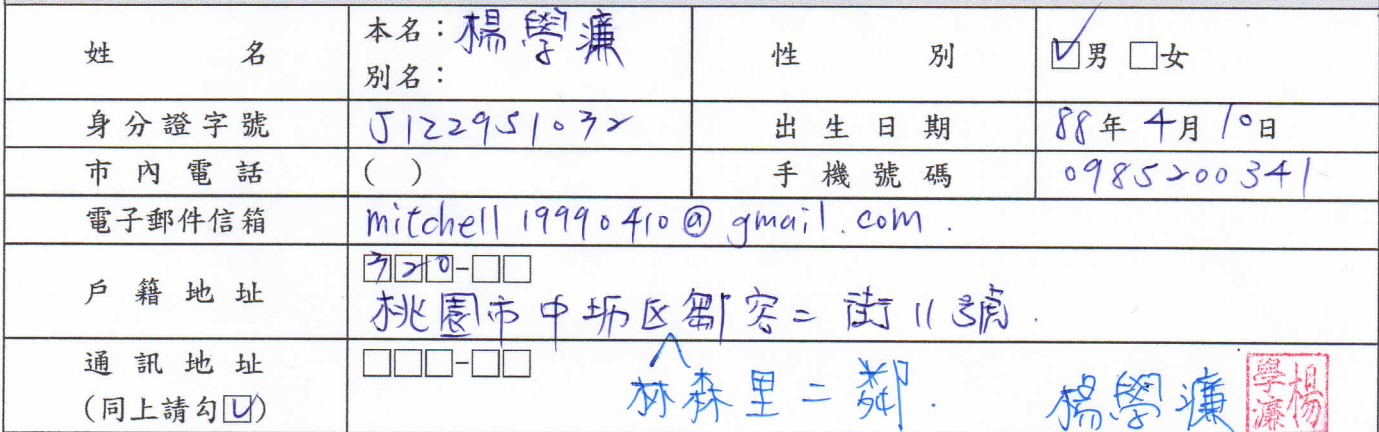 姓名 本名：楊學濂 性別 ☑男 □女
別名：
身分證字號 J122951032 出生日期 88年4月10日
市內電話 ( ) 手機號碼 0985200341
電子郵件信箱 mitchell19990410@gmail.com.
戶籍地址 320-□□
桃園市中坜区鄒容二街11號.
通訊地址 □□□-□□
(同上請勾☑) 林森里二鄰. 楊學濂 楊學濂